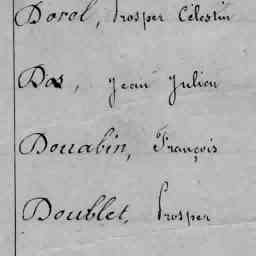 Dorol, Prosper Célestin
Dos, Jean Julien
Douabin, François
Doublet, Prosper